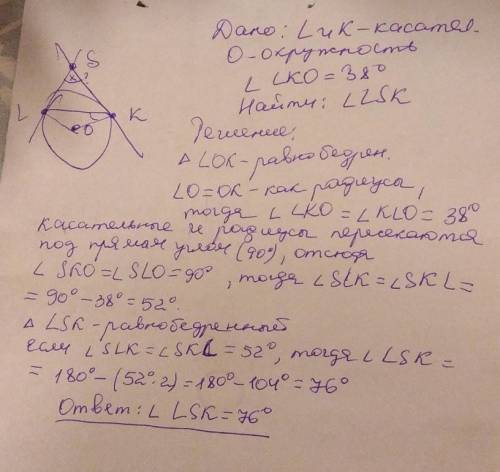 Дано: L и K - касател.
О - окружность
∠ LKO = 38°
Найти: ∠LSK
S
?
L
K
O
Решение:
△ LOK - равнобедрен.
LO = OK - как радиусы,
тогда ∠ LKO = ∠KLO = 38°
касательные и радиусы пересекаются
под прямым углом (90°), отсюда
∠ SKO = ∠SLO = 90°, тогда ∠SLK = ∠SKL =
= 90° - 38° = 52°.
△ LSK - равнобедренный
если ∠SLK = ∠SKL = 52°, тогда ∠ LSK =
= 180° - (52°·2) = 180° - 104° = 76°
Ответ: ∠ LSK = 76°